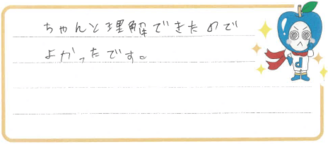 ちゃんと理解できたので
よかったです。
d